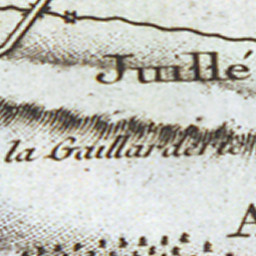 Juillé
la Gaillarderie
A